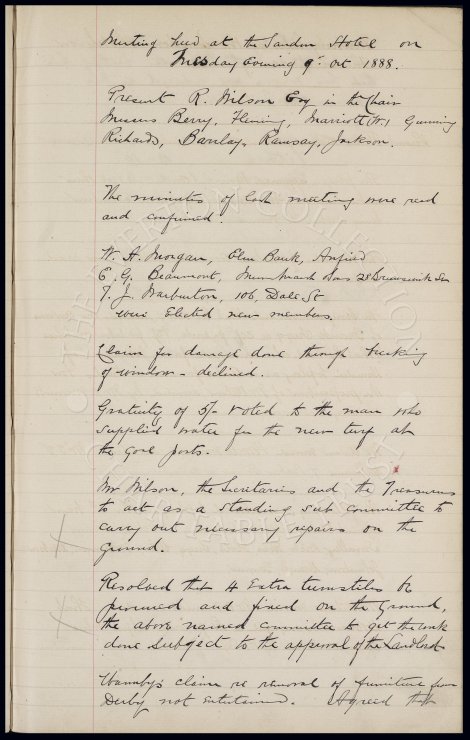 Meeting held at the Sandon Hotel on
Tuesday Evening 9th Oct 1888.
Present R. Wilson Esq in the Chair
Messrs Berry, Fleming, Marriott (W) Gunning
Richards, Barclay, Ramsay, Jackson.
The minutes of last meeting were read
and confirmed.
W. H. Morgan, Elm Bank, Anfield
E. G. Beaumont, 28 Brunswick
T. J. Warburton, 106, Dale St
were Elected new members.
Claim for damage done through breaking
of window - declined.
Gratuity of 5/- voted to the man who
supplied water for the new turf at
the Goal posts.
Mr Wilson, the Secretaries and the Treasurers
to act as a Standing sub committee to
carry out necessary repairs on the
ground.
Resolved that 4 Extra turnstiles be
procured and fixed on the Ground,
the above named committee to get the work
done subject to the approval of the Landlord
claim re removal of furniture from
Derby not entertained. Agreed that